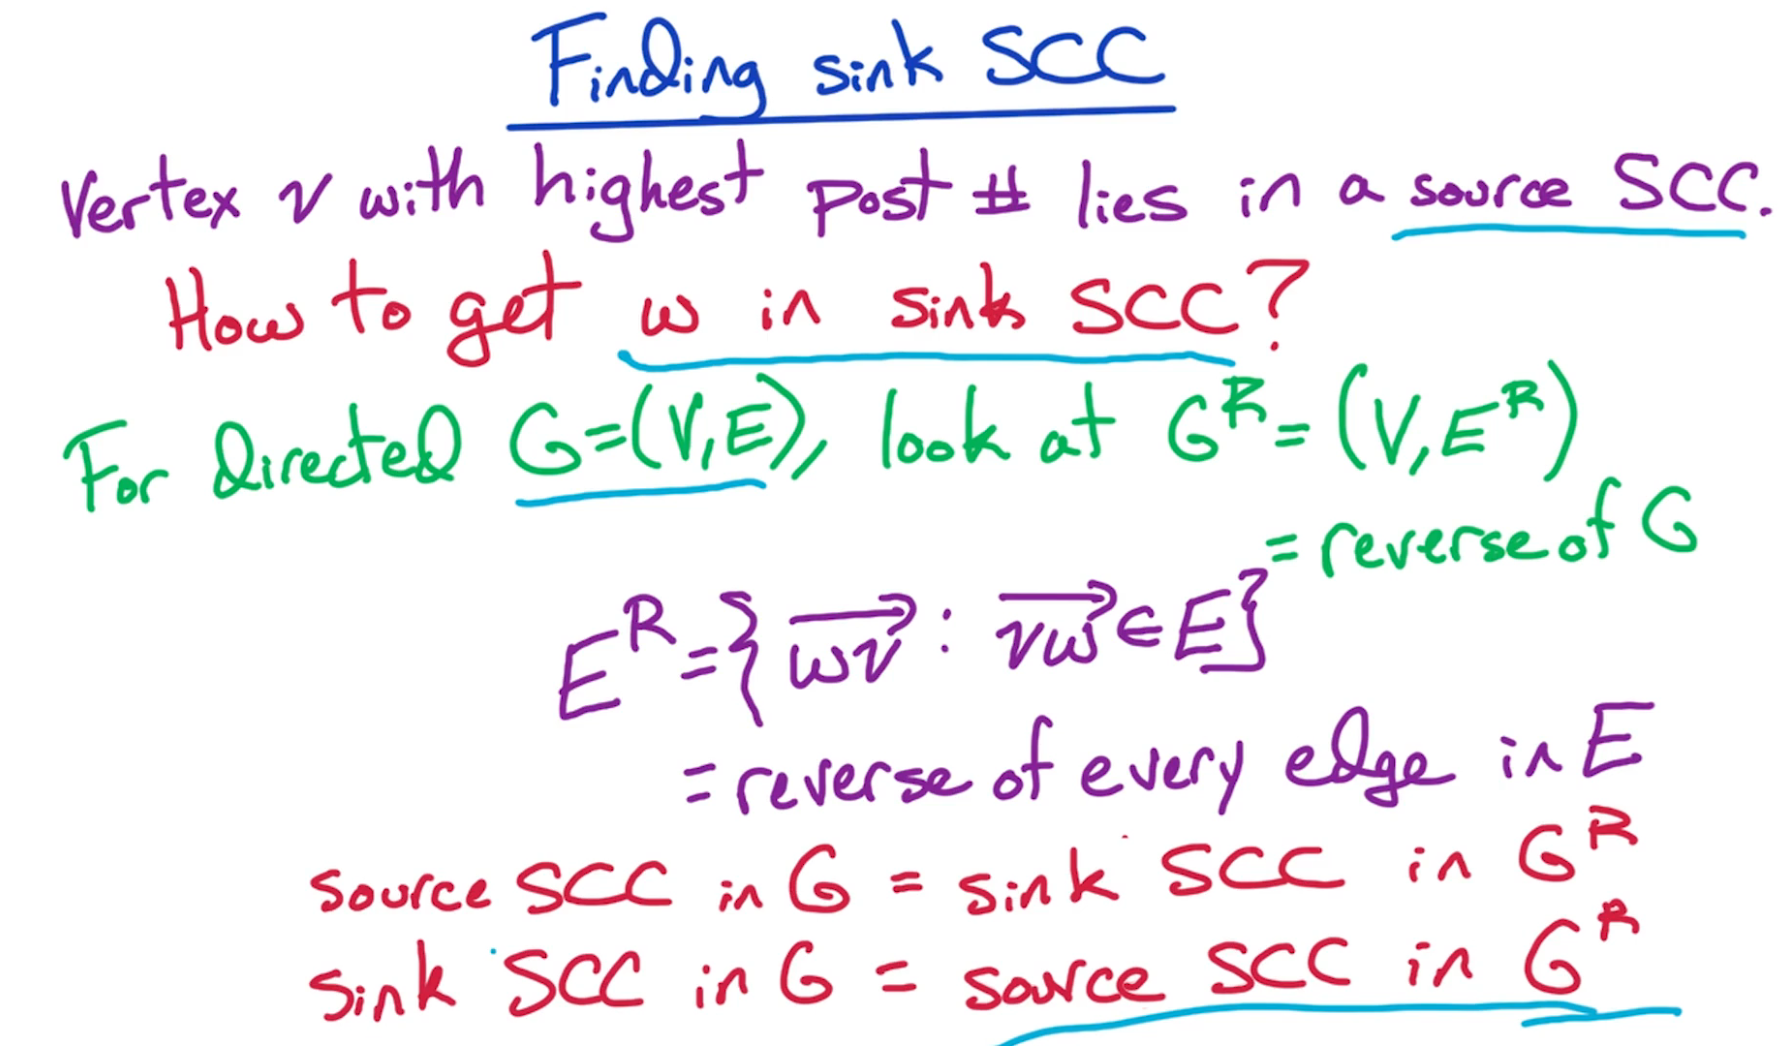 Finding sink SCC
Vertex v with highest post # lies in a source SCC.
How to get w in sink SCC?
For directed G=(V,E), look at Gᴿ=(V,Eᴿ)
= reverse of G
Eᴿ={ w͞v⃗ : v͞w⃗ ∈ E}
= reverse of every edge in E
source SCC in G = sink SCC in Gᴿ
sink SCC in G = source SCC in Gᴿ